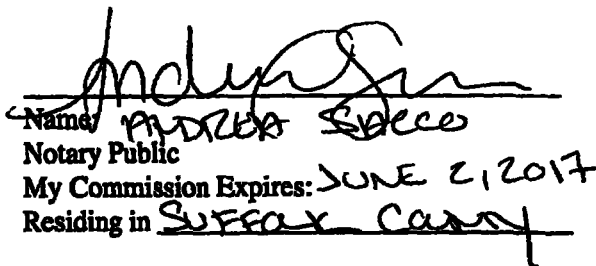 Name: ANDREA SACCO
Notary Public
My Commission Expires: JUNE 2, 2017
Residing in SUFFOLK COUNTY